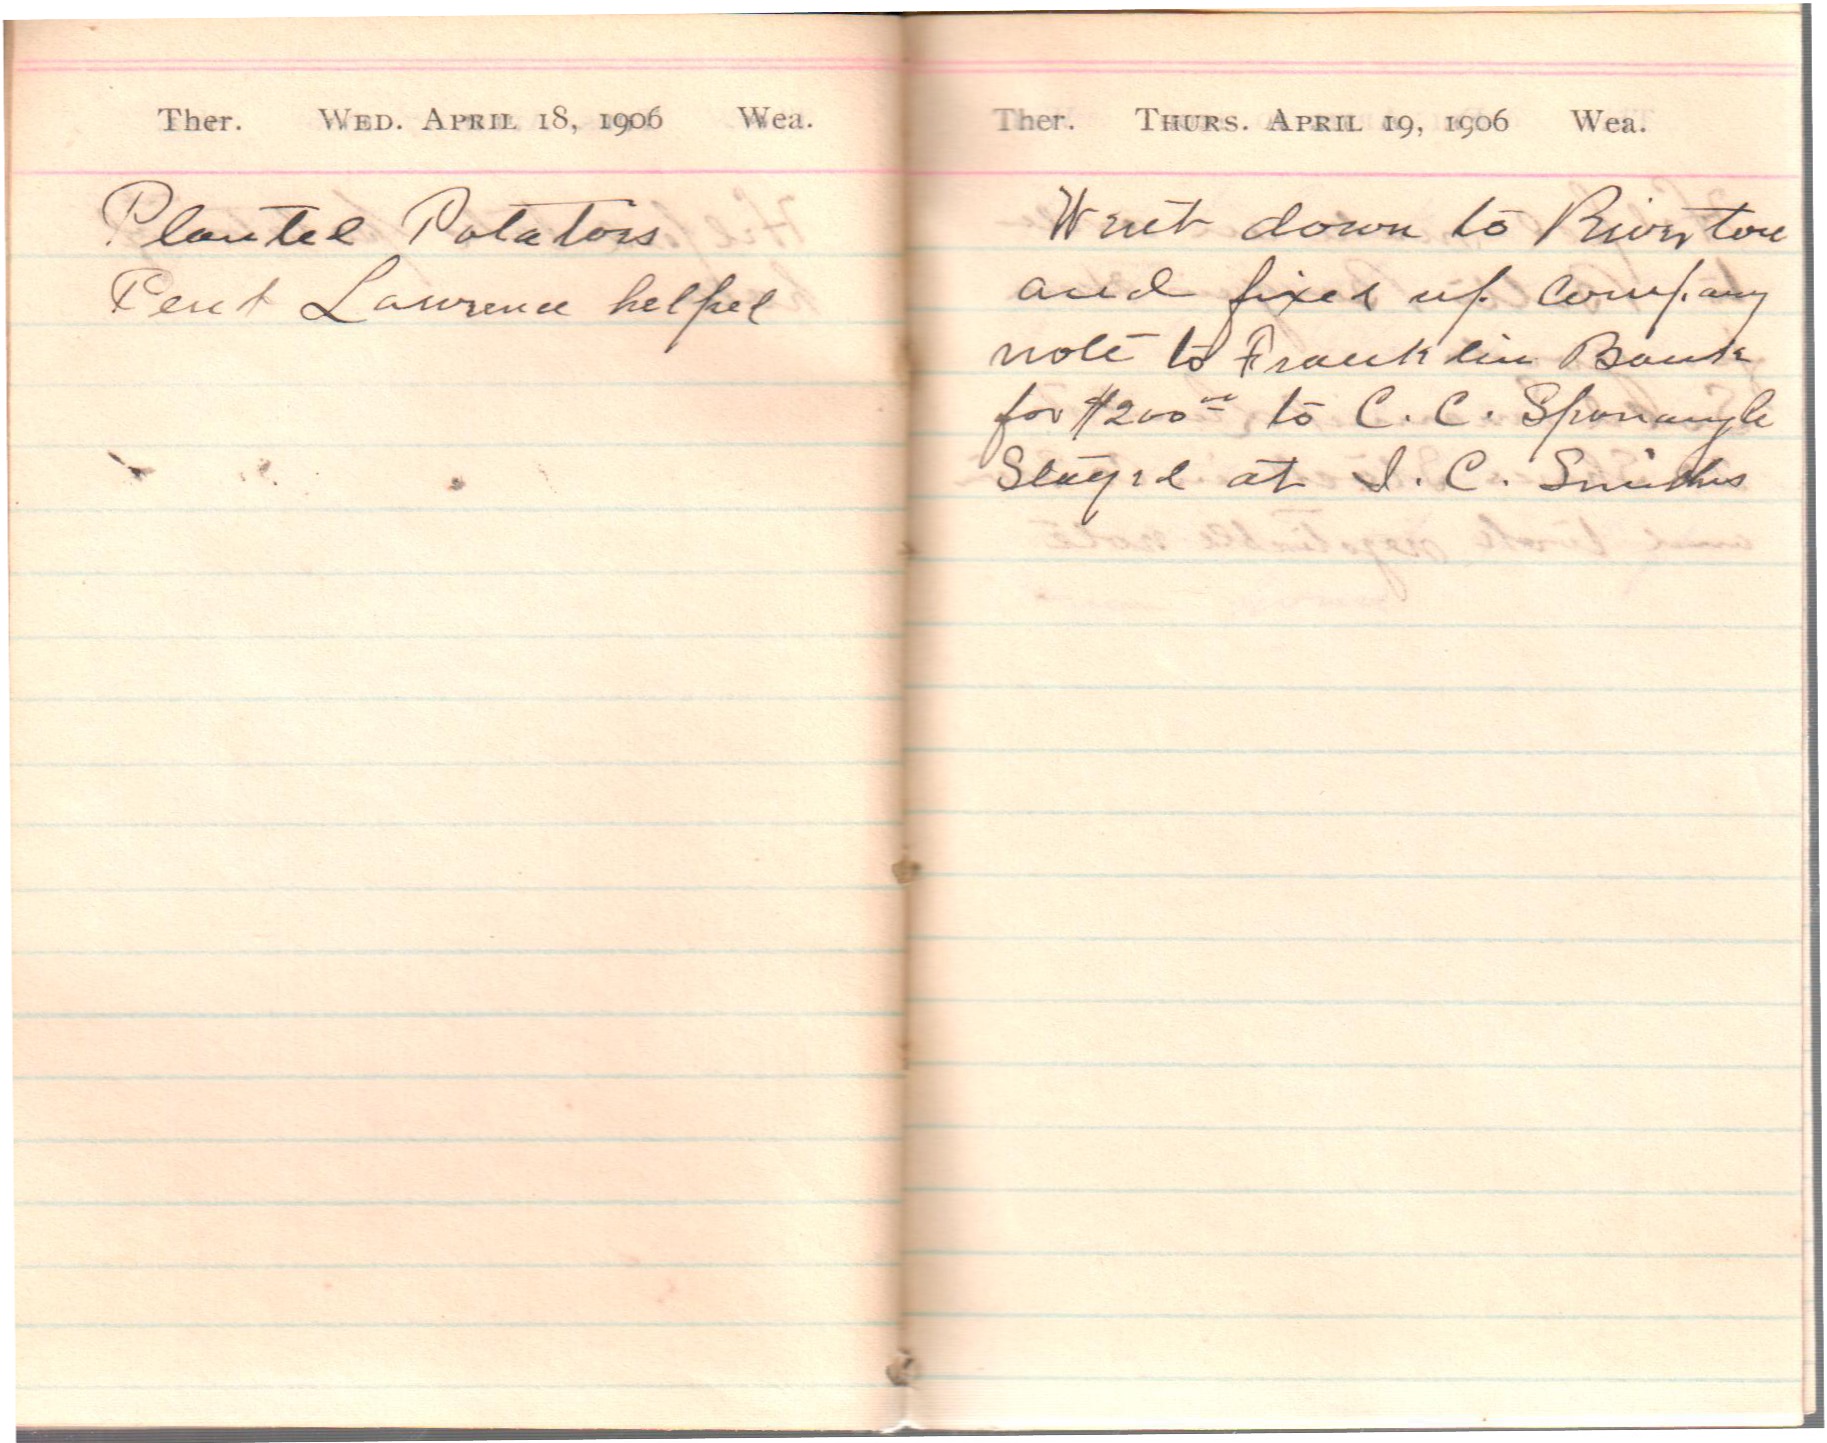 Ther. WED. APRIL 18, 1906 Wea.
Planted Potatoes
Pent Lawrence helped
Ther. THURS. APRIL 19, 1906 Wea.
Went down to Riverton
and fixed up Company
note to Franklin Bank
for $200 00 to C. C. Sponaugle
Stayed at I. C. Smiths